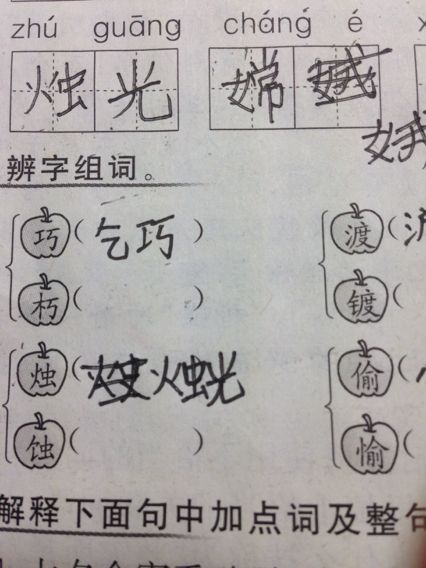 zhú guāng cháng é
烛光 嫦
娥
辨字组词。
巧(乞巧) 渡(
朽( ) 镀(
烛(烛光 偷(
蚀( ) 愉(
解释下面句中加点词及整句